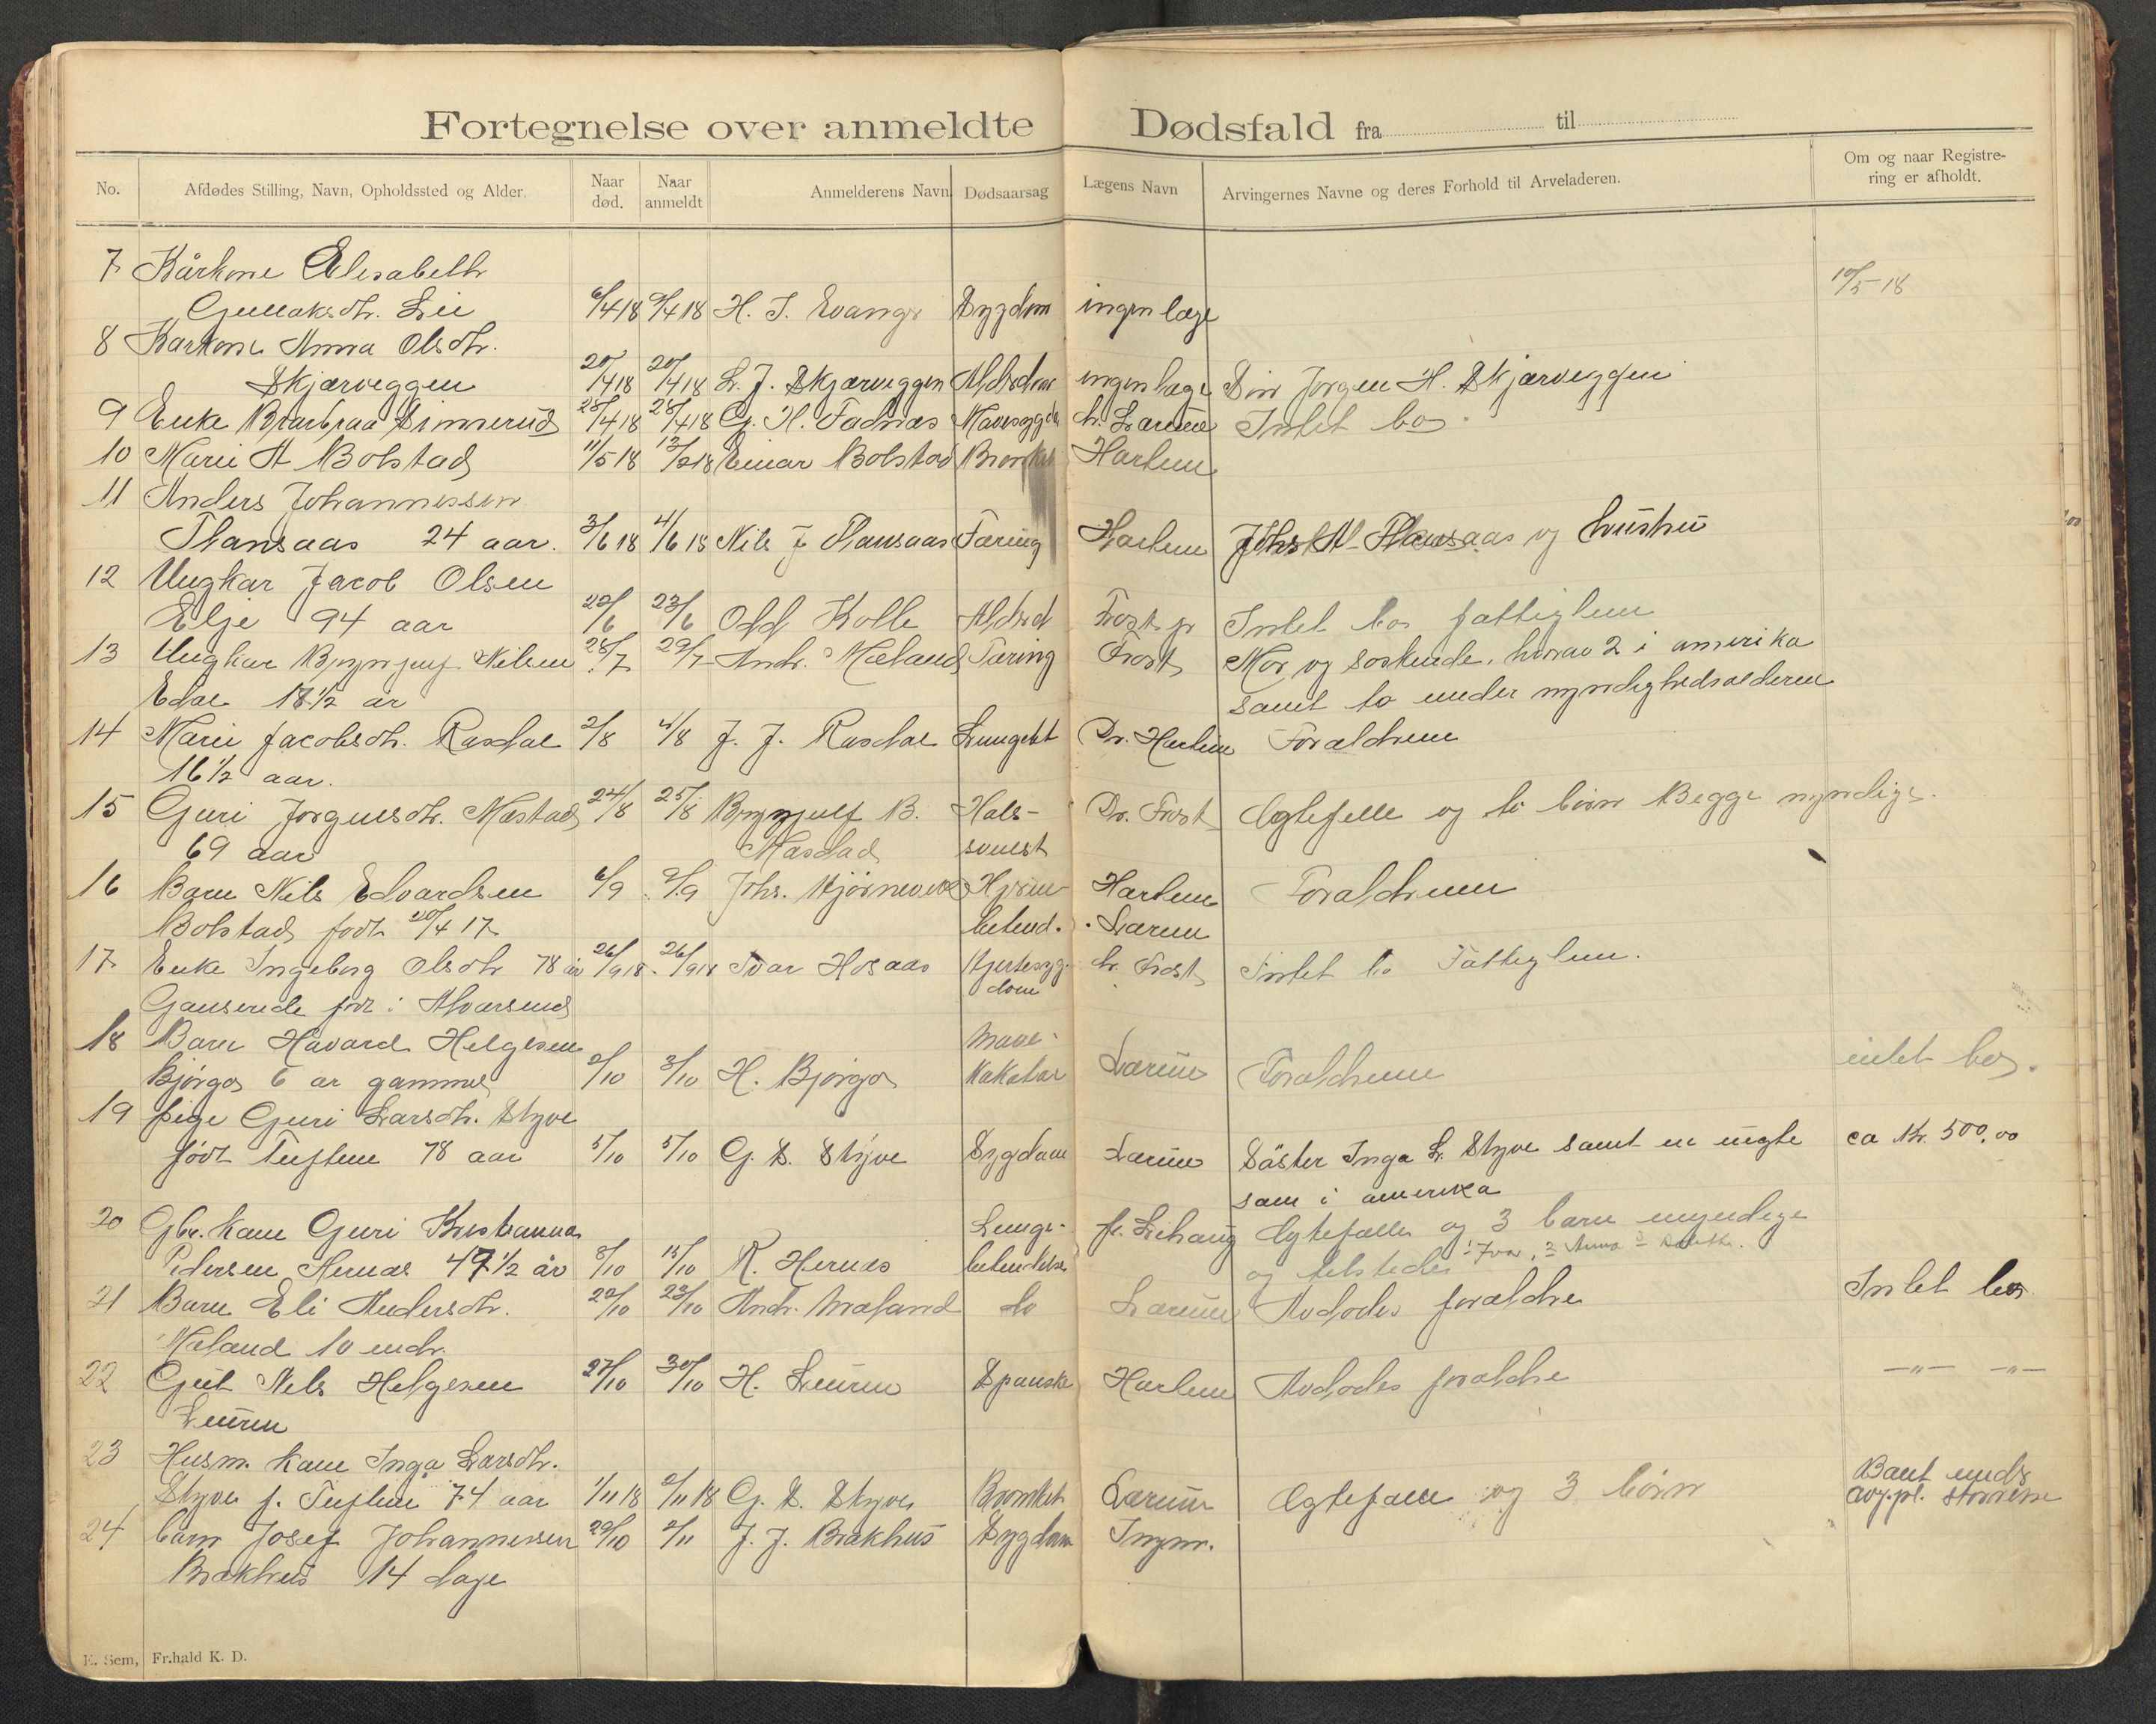 Fortegnelse over anmeldte Dødsfald fra til
No.
Afdødes Stilling, Navn, Opholdssted og Alder.
Naar død.
Naar anmeldt
Anmelderens Navn
Dødsaarsag
Lægens Navn
Arvingernes Navne og deres Forhold til Arveladeren.
Om og naar Registrering er afholdt.
7 Kårkone Elisabeth 10/5-18
Gullaksdtr. Lii 6/4 18 9/4 18 H. S. Evanger Sygdom ingen læge
8 Karkone Anna Olsdtr.
Skjærveggen 20/4 18 20/4 18 L. J. Skjærveggen Alderdom ingen læge Sön Jorgen H. Skjærveggen
9 Enke Brarbraa Simmerud 25/4 18 28/4 18 G. H. Fadnæs Mavesygd. Lærum Intet bo
10 Marie A Bolstad 11/5 18 13/5 18 Einar Bolstad Bronkit Harlem
11 Anders Johannessen
Flansaas 24 aar. 3/6 18 4/6 18 Nils J Flansaas Tæring Harlem Johs A. Flansaas og hustru
12 Ungkar Jacob Olsen
Elje 94 aar 22/6 23/6 Odd Kolle Alderd Frost jr Intet bo fattiglem
13 Ungkar Brynjulf Nilsen 28/7 29/7 Andr. Mæland Tæring Frost Mor og soskende, hvorav 2 i amerika
Edal 18 1/2 år samt to under myndighedsalderen
14 Marie Jacobsdtr. Rasdal 2/8 4/8 J. J. Rasdal Lungebet Dr. Harlem Foraldrene
16 1/2 aar.
15 Guri Jorgensdtr. Mæstad 24/8 25/8 Brynjulf B. Hals- Dr. Frost Egtefelle og to börn Begge myndige.
69 aar Mæstad svulst
16 Barn Nils Edvardsen 6/9 9/9 Johs. Bjørnevik Hjerne- Harlem Foraldrene
Bolstad født 20/4 17 betend. Lærum
17 Enke Ingeborg Olsdtr 78 år 26/9 18 26/9 18 Ivar Horsaas Hjertesyg- Frost Intet bo Fattiglem.
Gauserede født: Alvarsund dom
18 Barn Håvard Helgesen Mave-
Bjørgo 6 år gammel 2/10 3/10 H. Bjørgo Kakatar Lærum Foraldrene intet bo.
19 pige Guri Larsdtr. Styve
født Tuften 78 aar 5/10 5/10 G. S. Styve Sygdom Lærum Søster Inga L. Styve samt en ungte ca Kr. 500,00
sam i amerika
20 Gbr. kone Guri Kristianna Lunge- fr. Lihaug Egtefælle og 3 barn umyndige
Pedersen Hernæs 47 1/2 år 8/10 15/10 R. Hernæs betendelse og tilstede: 1 Ivar, 2 Anna 3
21 Barn Eli Andersdtr. 22/10 23/10 Andr. Mæland do Lærum Avdødes foraldre Intet bo
Mæland 10 mdr.
22 Gut Nils Helgesen 27/10 30/10 H. Leuren Spanske Harlem Avdødes foraldre —"— —"—
Leuren
23 Husm. kone Inga Larsdtr.
Styve f. Tuften 74 aar 1/11 18 2/11 18 G. S. Styve Bronket Lærum Egtefælle og 3 börn
24 barn Josef Johannessen 29/10 2/11 J. J. Brækhus Sygdom Ingen.
Brækhus 14 dage
E. Sem, Fr.hald K. D.